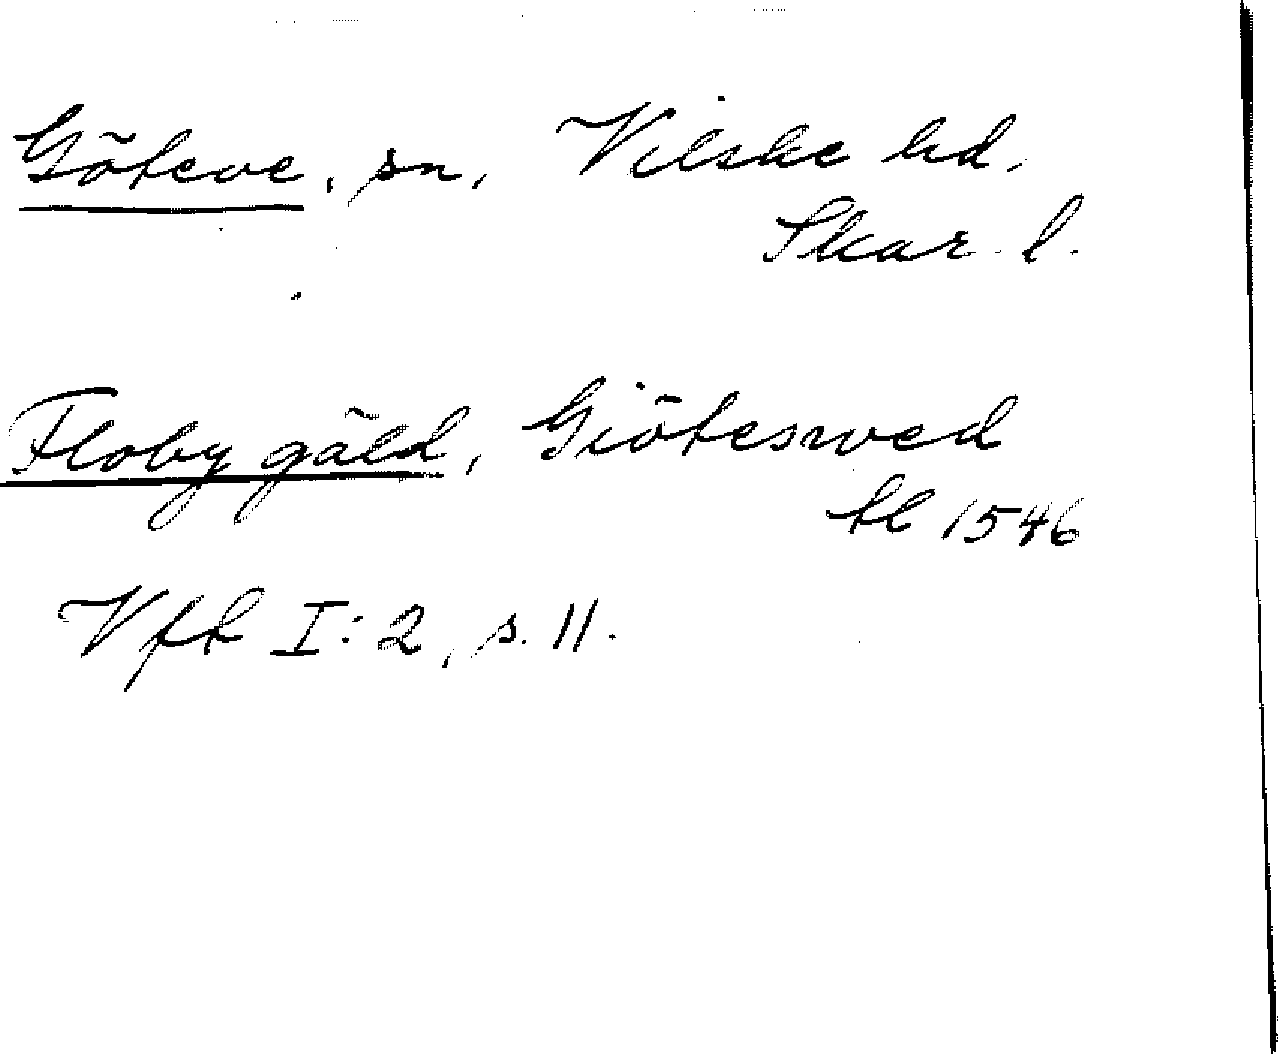 Göteve, sn, Vilske hd,
Skar. l.
Floby gäld, Giöteswed
tl 1546
Vfl I:2, s. 11.